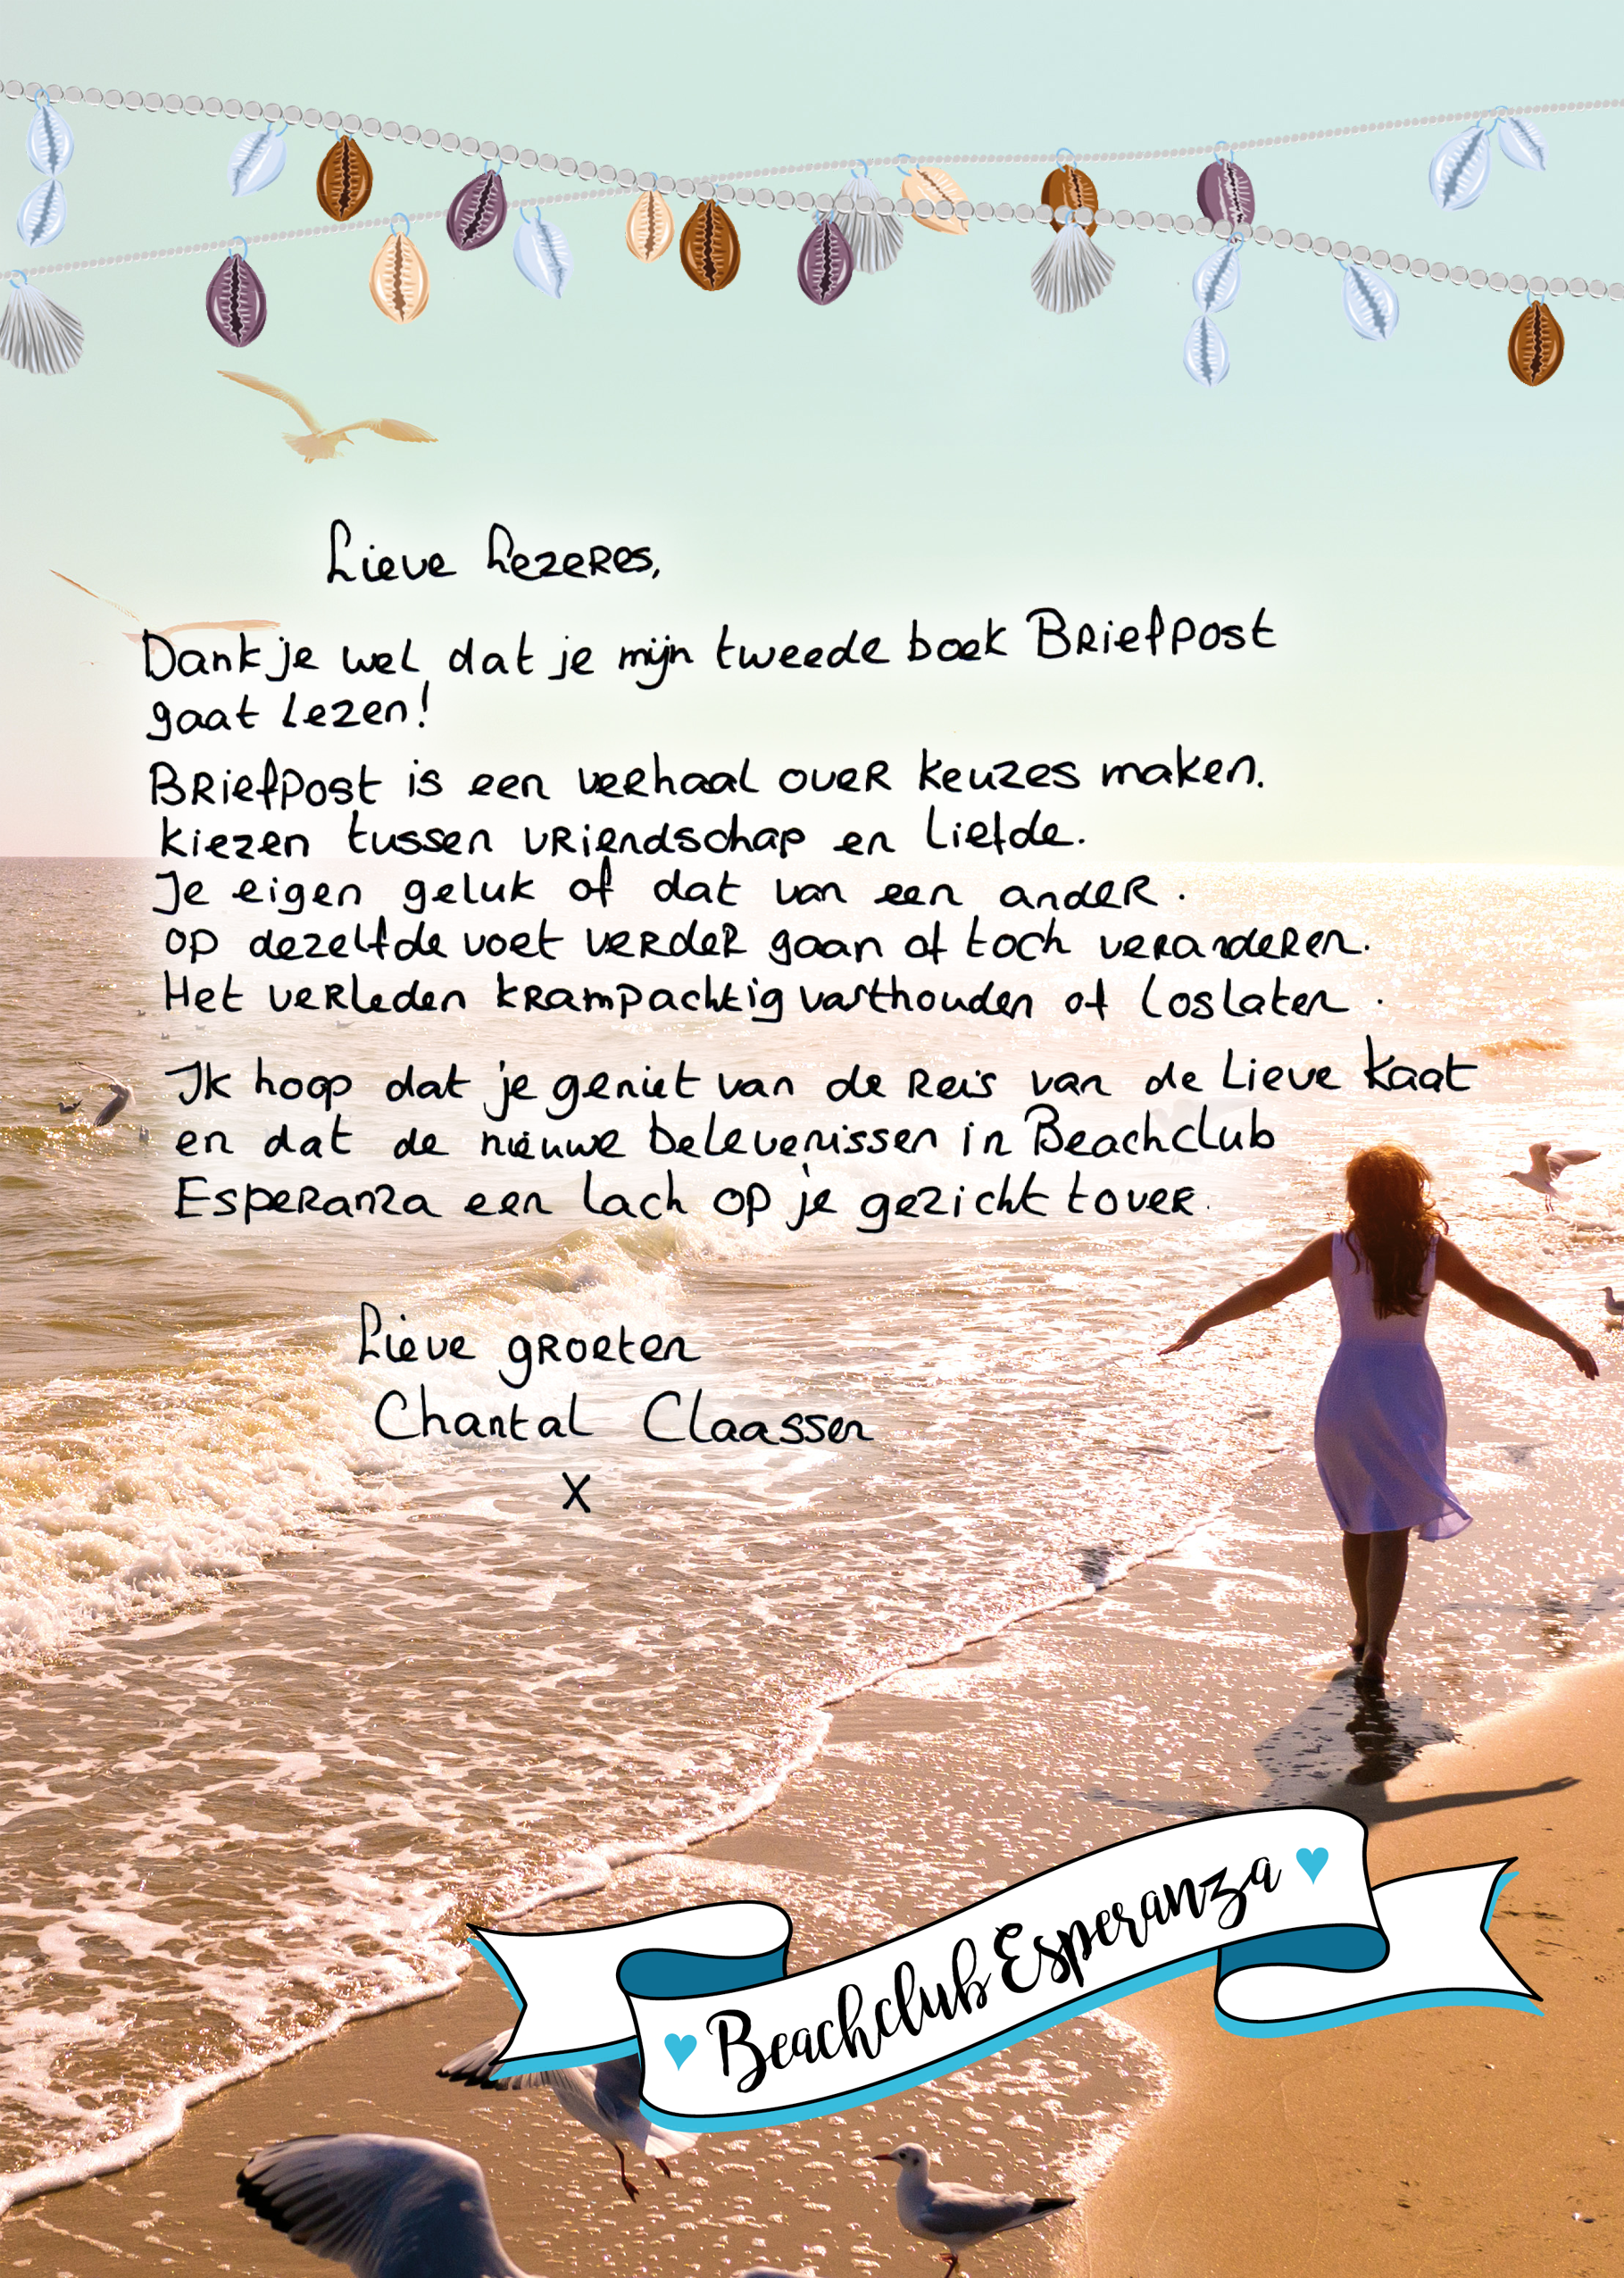 Lieve Lezeres,
Dank je wel dat je mijn tweede boek Briefpost
gaat lezen!
Briefpost is een verhaal over keuzes maken.
Kiezen tussen vriendschap en liefde.
Je eigen geluk of dat van een ander.
Op dezelfde voet verder gaan of toch veranderen.
Het verleden krampachtig vasthouden of loslaten.
Ik hoop dat je geniet van de reis van de lieve Kaat
en dat de nieuwe belevenissen in Beachclub
Esperanza een lach op je gezicht tover.
Lieve groeten
Chantal Claassen
X
Beachclub Esperanza